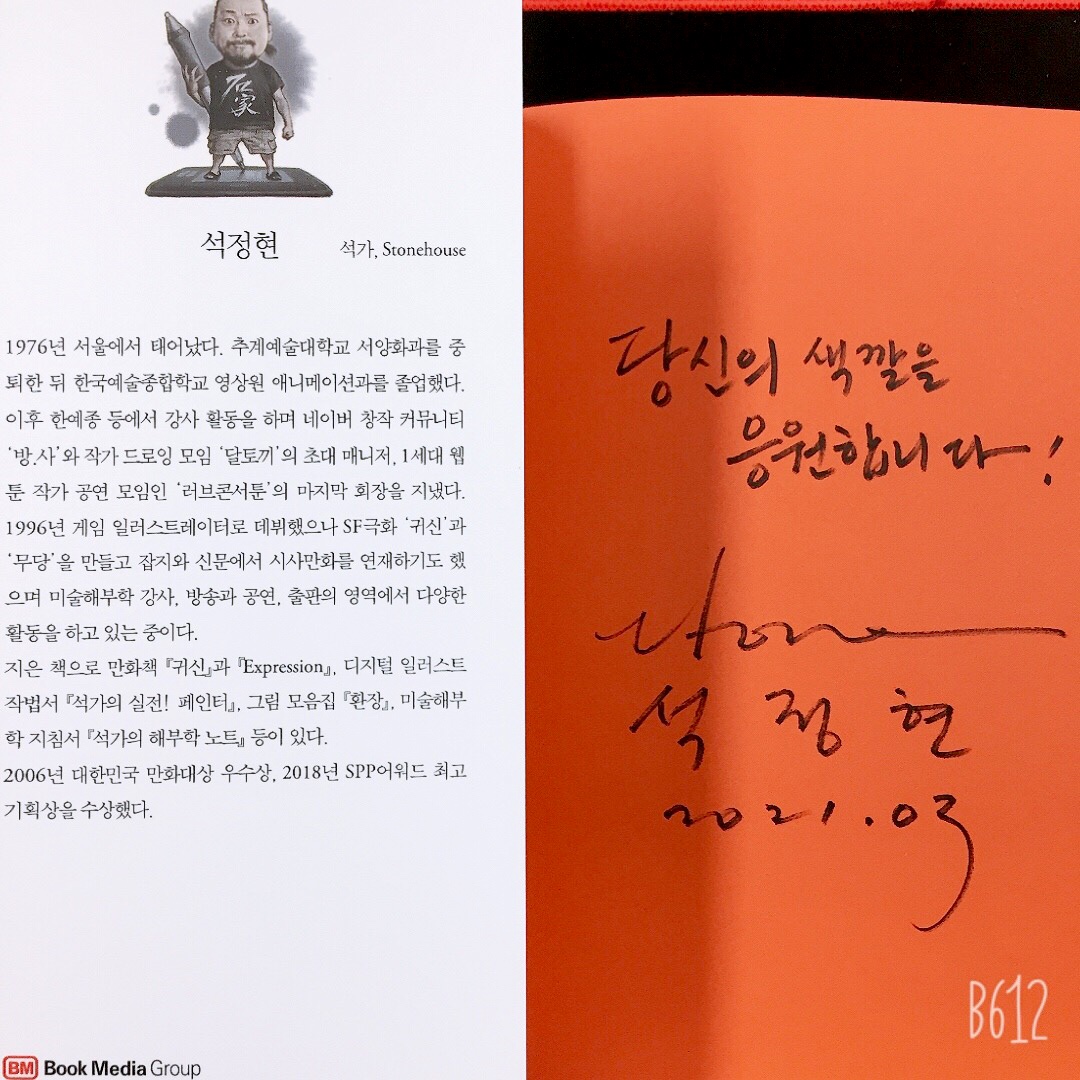 石家
석정현 석가, Stonehouse
1976년 서울에서 태어났다. 추계예술대학교 서양화과를 중
퇴한 뒤 한국예술종합학교 영상원 애니메이션과를 졸업했다.
이후 한예종 등에서 강사 활동을 하며 네이버 창작 커뮤니티
‘방.사’와 작가 드로잉 모임 ‘달토끼’의 초대 매니저, 1세대 웹
툰 작가 공연 모임인 ‘러브콘서툰’의 마지막 회장을 지냈다.
1996년 게임 일러스트레이터로 데뷔했으나 SF극화 ‘귀신’과
‘무당’을 만들고 잡지와 신문에서 시사만화를 연재하기도 했
으며 미술해부학 강사, 방송과 공연, 출판의 영역에서 다양한
활동을 하고 있는 중이다.
지은 책으로 만화책 『귀신』과 『Expression』, 디지털 일러스트
작법서 『석가의 실전! 페인터』, 그림 모음집 『환장』, 미술해부
학 지침서 『석가의 해부학 노트』 등이 있다.
2006년 대한민국 만화대상 우수상, 2018년 SPP어워드 최고
기획상을 수상했다.
BM Book Media Group
당신의 색깔을
응원합니다!
석정현
2021.03
B612